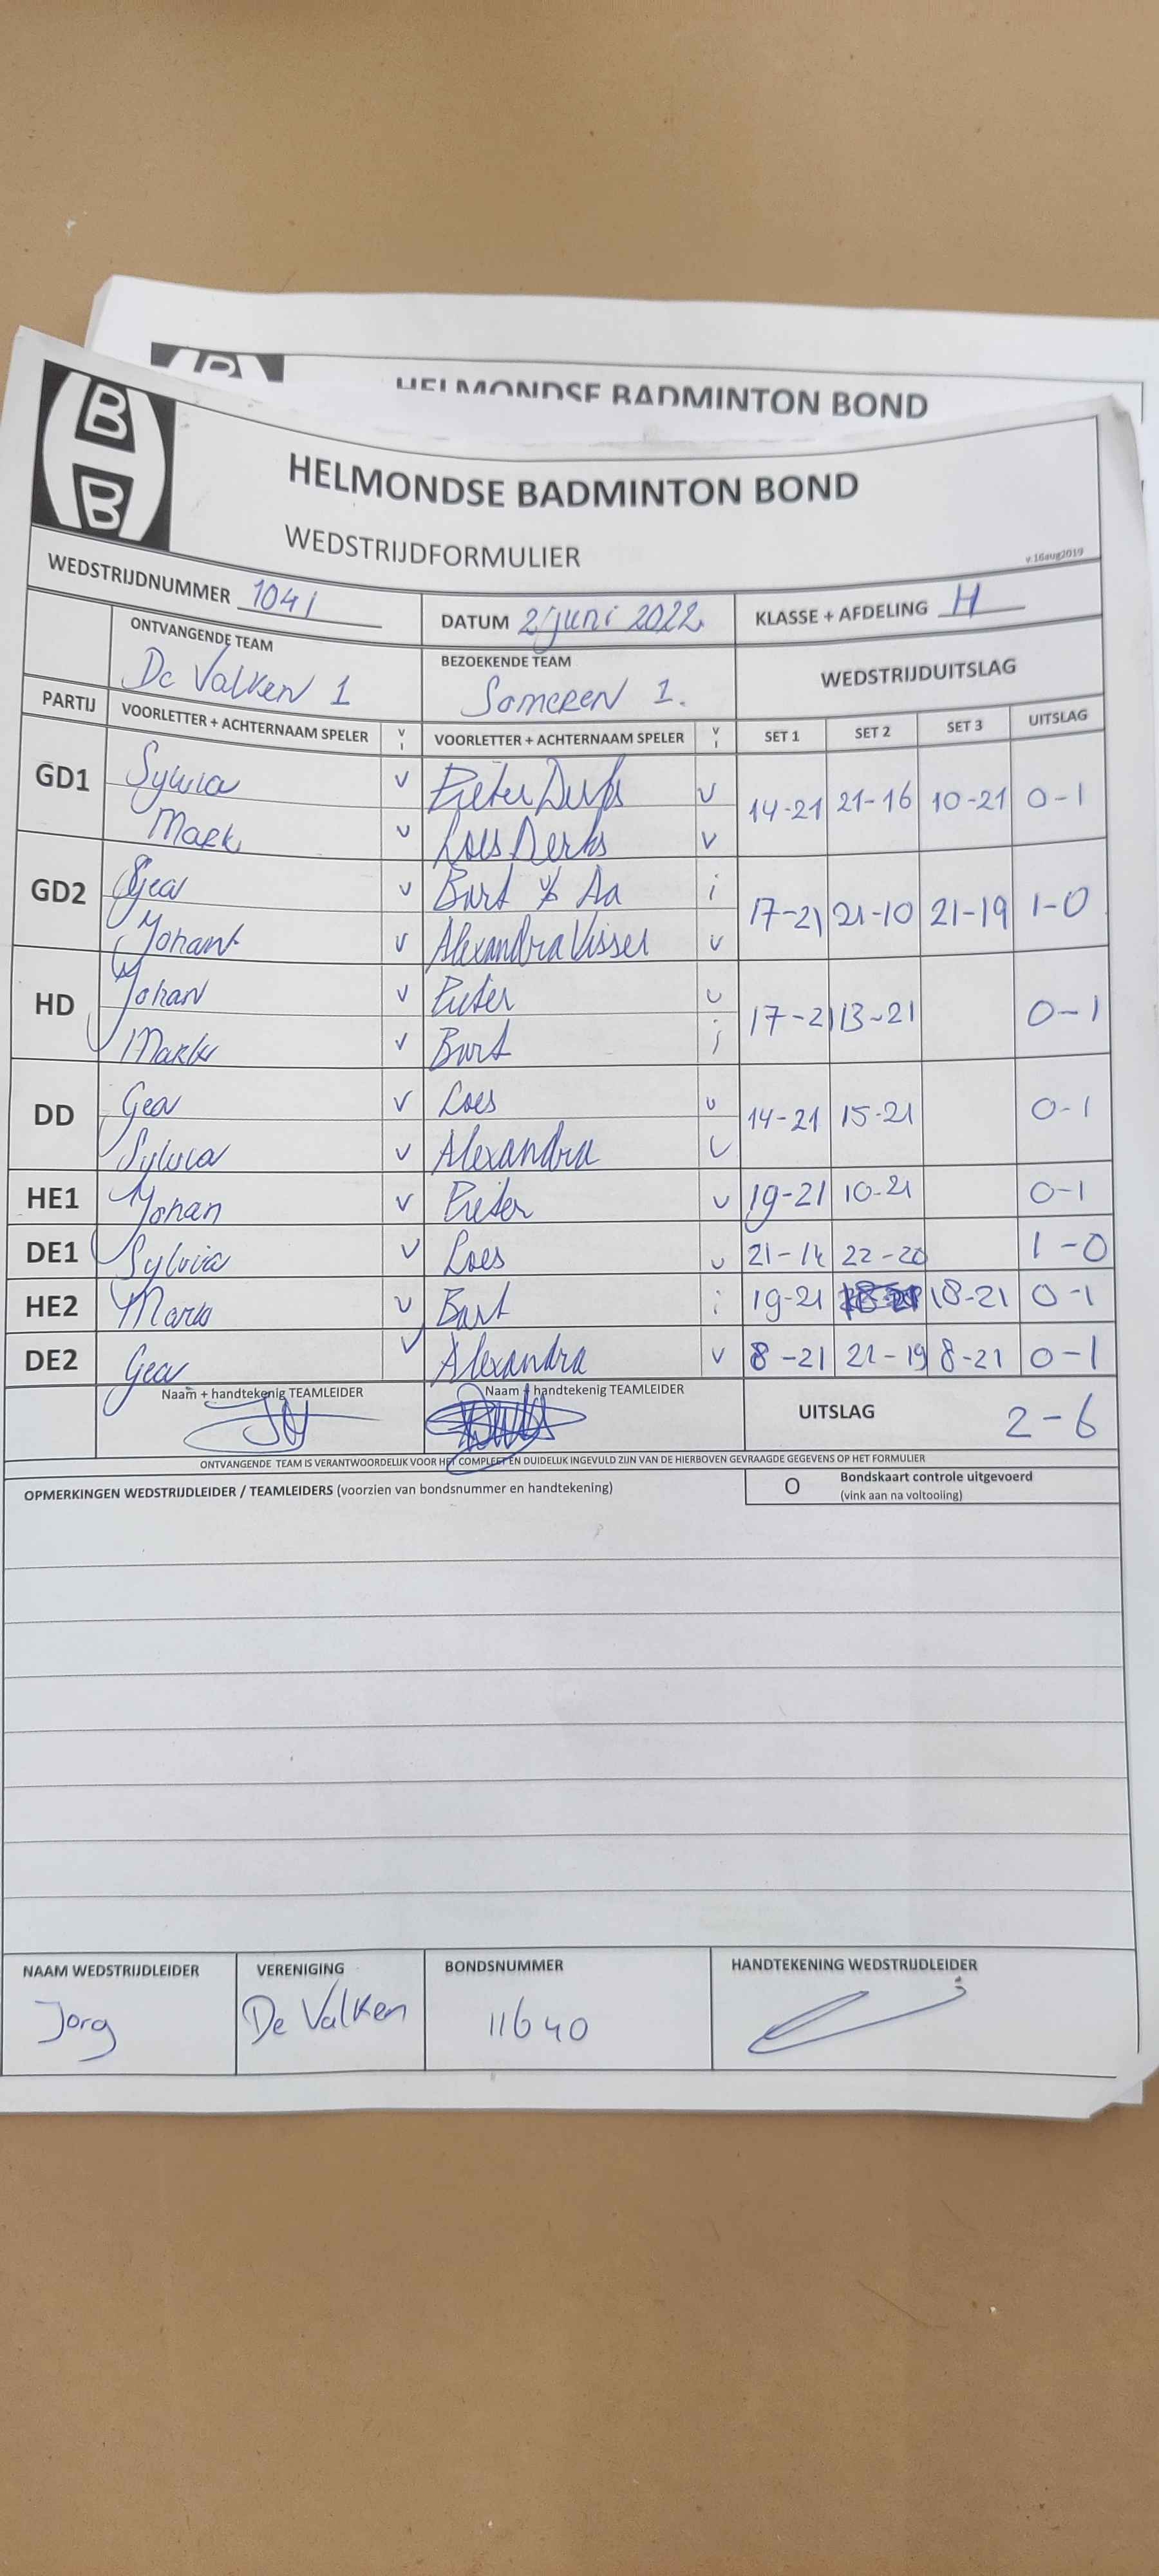 HELMONDSE BADMINTON BOND
B
B
HELMONDSE BADMINTON BOND
WEDSTRIJDFORMULIER
v.16aug2019
WEDSTRIJDNUMMER 1041 DATUM 2 juni 2022 KLASSE + AFDELING H
ONTVANGENDE TEAM BEZOEKENDE TEAM WEDSTRIJDUITSLAG
De Valken 1 Someren 1.
PARTIJ VOORLETTER + ACHTERNAAM SPELER V I VOORLETTER + ACHTERNAAM SPELER V I SET 1 SET 2 SET 3 UITSLAG
GD1 Sylvia v Pieter Derks v 14-21 21-16 10-21 0-1
Mark v Loes Derks v
GD2 Gea v Bart Aa i 17-21 21-10 21-19 1-0
Johan v Alexandra Visser v
HD Johan v Pieter v 17-21 13-21 0-1
Mark v Bart i
DD Gea v Loes v 14-21 15-21 0-1
Sylvia v Alexandra v
HE1 Johan v Pieter v 19-21 10-21 0-1
DE1 Sylvia v Loes v 21-14 22-20 1-0
HE2 Mark v Bart i 19-21 18-21 0-1
DE2 Gea v Alexandra v 8-21 21-19 8-21 0-1
Naam + handtekenig TEAMLEIDER Naam + handtekenig TEAMLEIDER UITSLAG 2-6
ONTVANGENDE TEAM IS VERANTWOORDELIJK VOOR HET COMPLEET EN DUIDELIJK INGEVULD ZIJN VAN DE HIERBOVEN GEVRAAGDE GEGEVENS OP HET FORMULIER
OPMERKINGEN WEDSTRIJDLEIDER / TEAMLEIDERS (voorzien van bondsnummer en handtekening) O Bondskaart controle uitgevoerd
(vink aan na voltooiing)
NAAM WEDSTRIJDLEIDER VERENIGING BONDSNUMMER HANDTEKENING WEDSTRIJDLEIDER
Jorg De Valken 11640